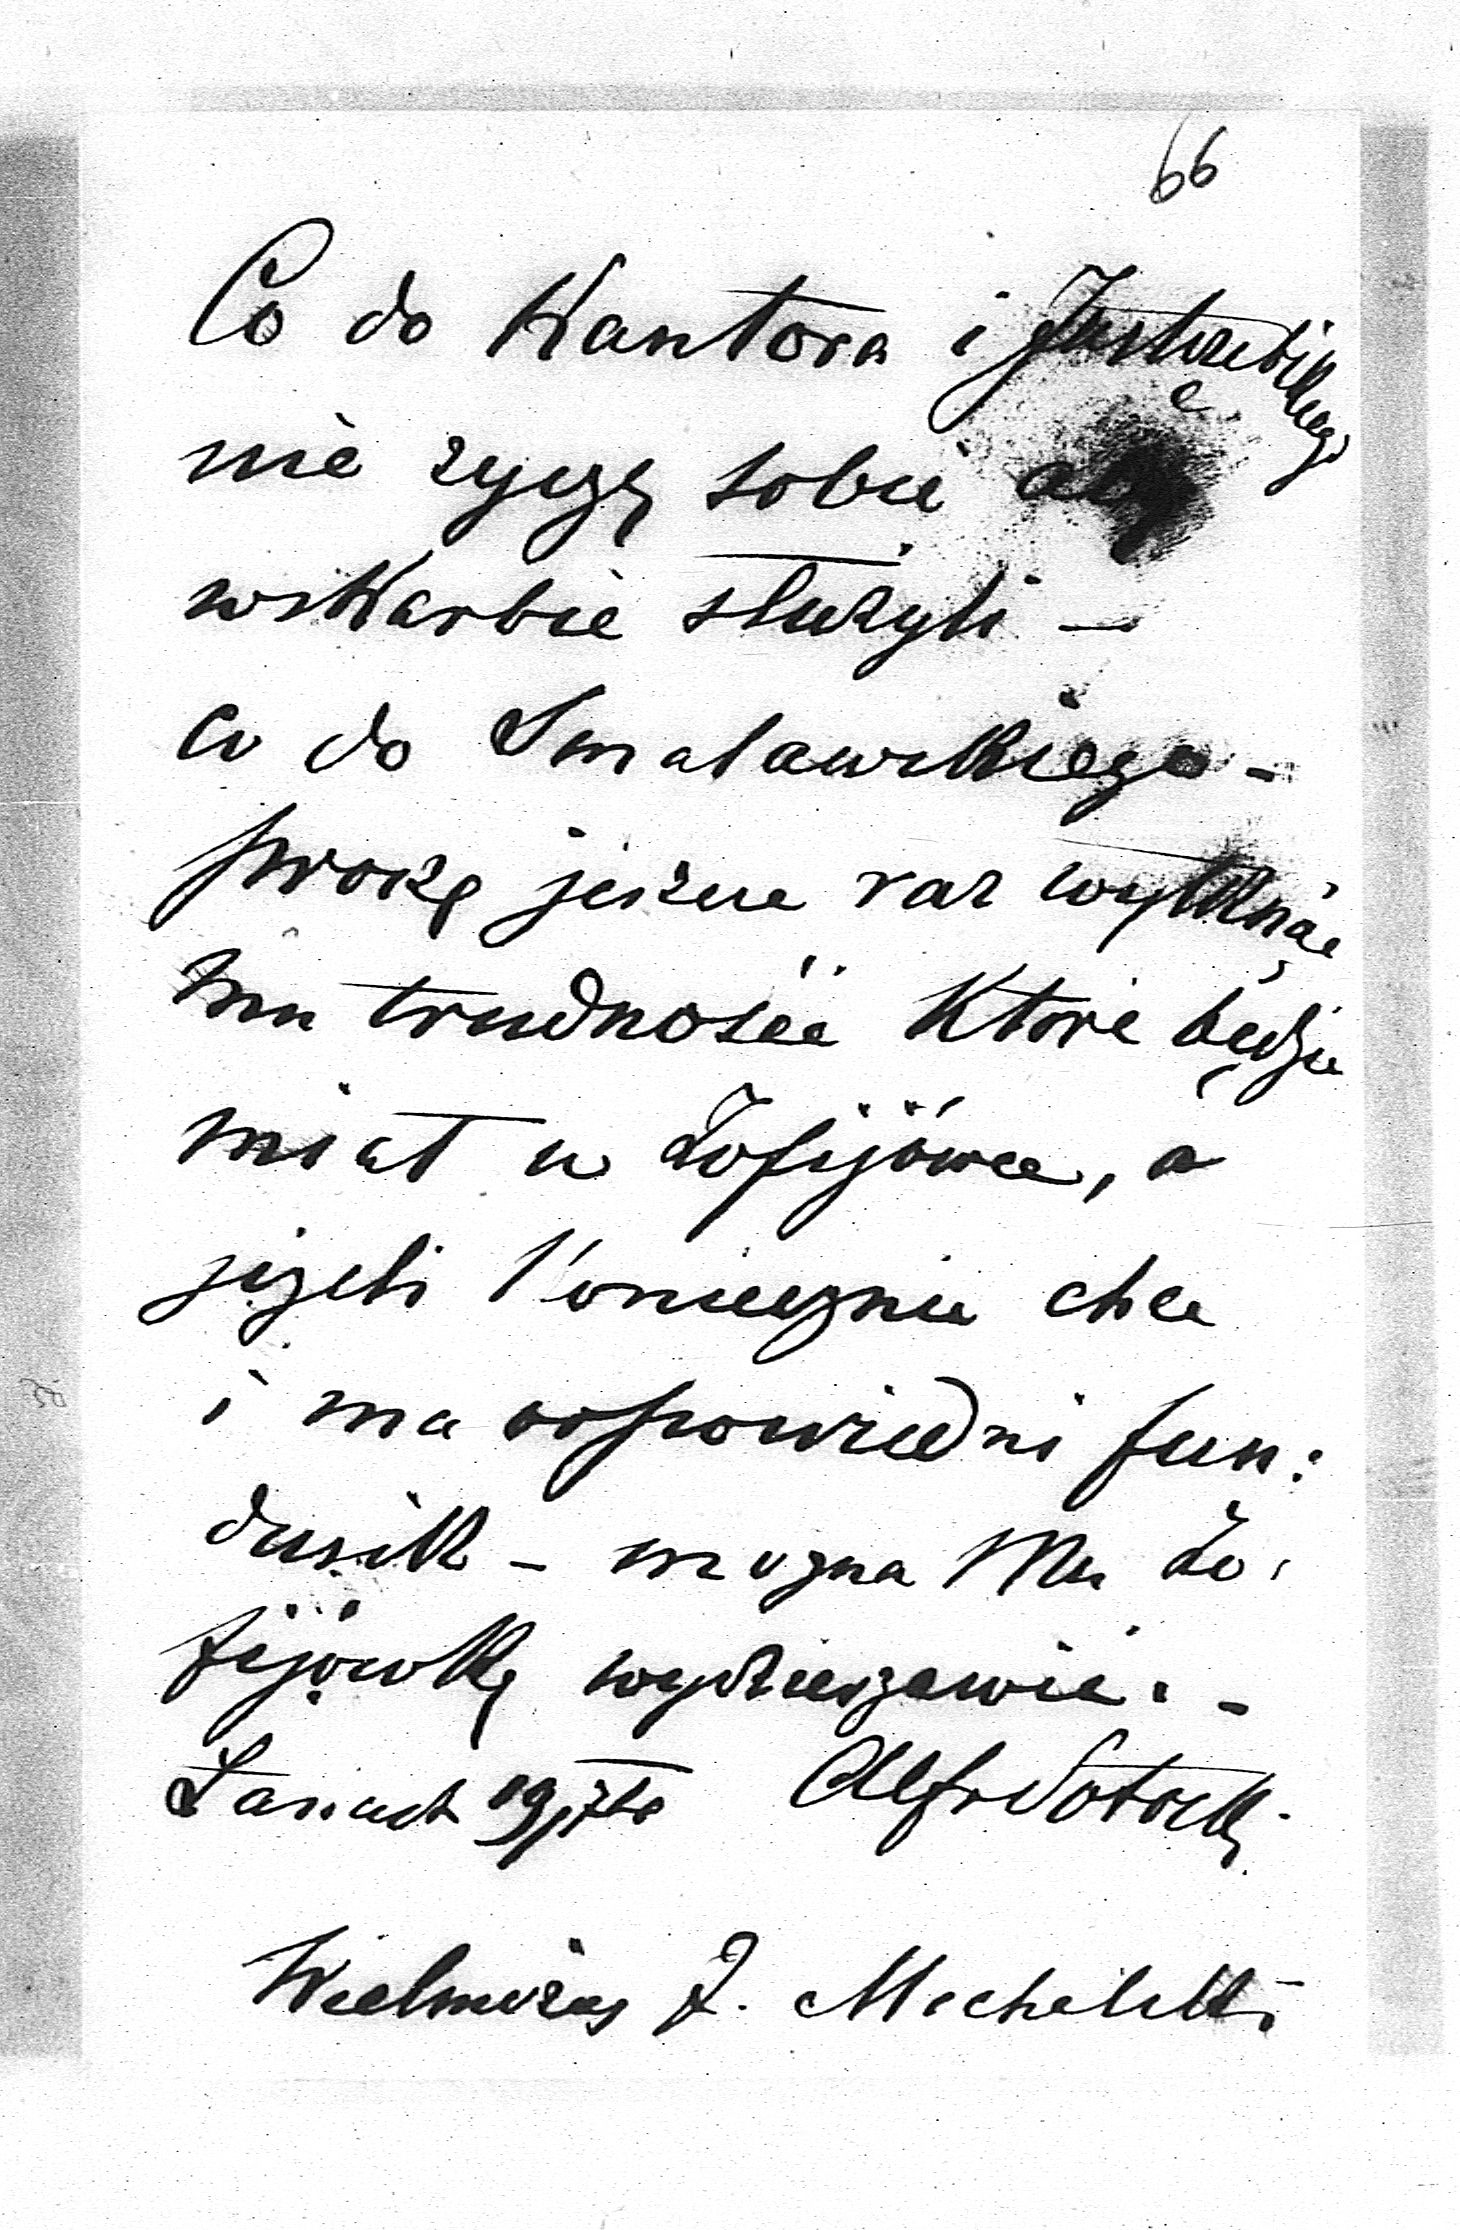 66
Co do Kantora i Jastrzebskiego
nie zyczę sobie aby
w skarbie służyli –
co do Smalawskiego –
proszę jeszcze raz wytknąć
mu trudności które będzie
miał w Zofijówce, a
jeżeli koniecznie chce
i ma odpowiedni fun:
dusik – mozna Mu Zo:
fijówkę wydzierzawić. –
Łańcut 19/7br Alfr Potocki
Wielmożny J. Micheletti